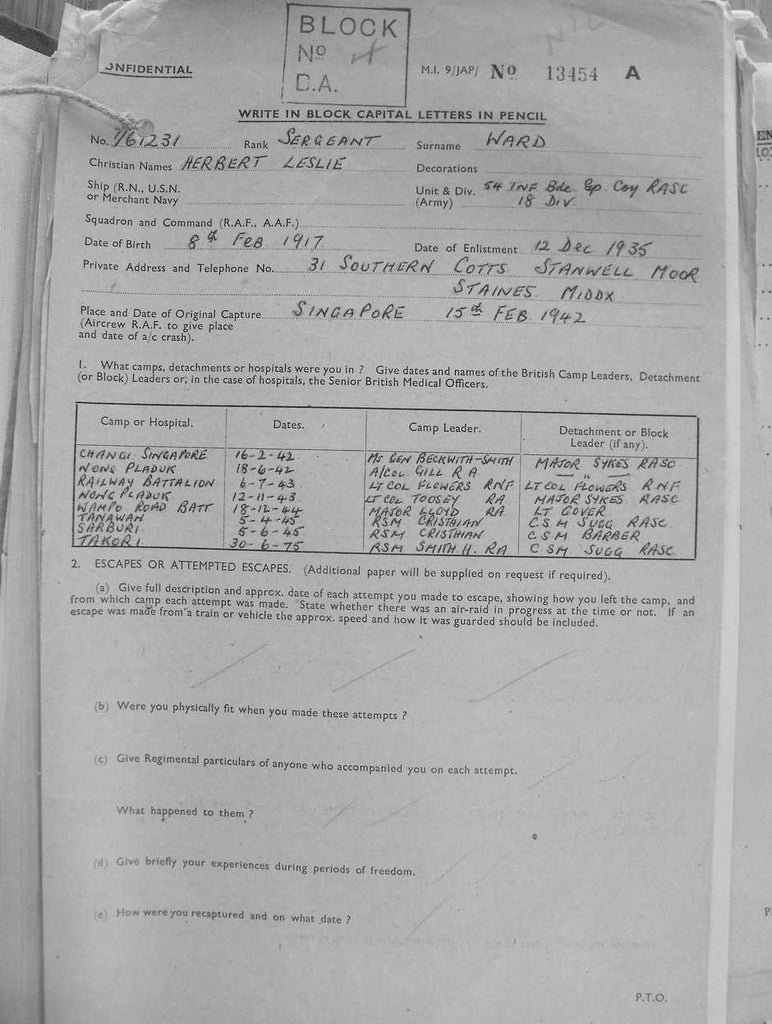 BLOCK
No
C.A.
ONFIDENTIAL
M.I. 9/JAP/ No 13454 A
WRITE IN BLOCK CAPITAL LETTERS IN PENCIL
No. T/61231 Rank SERGEANT Surname WARD
Christian Names HERBERT LESLIE Decorations
Ship (R.N., U.S.N. or Merchant Navy Unit & Div. (Army) 54 INF Bde Gp Coy RASC 18 DIV
Squadron and Command (R.A.F., A.A.F.)
Date of Birth 8th FEB 1917 Date of Enlistment 12 DEC 1935
Private Address and Telephone No. 31 SOUTHERN COTTS STANWELL MOOR
STAINES MIDDX
Place and Date of Original Capture SINGAPORE 15th FEB 1942
(Aircrew R.A.F. to give place
and date of a/c crash).
1. What camps, detachments or hospitals were you in ? Give dates and names of the British Camp Leaders, Detachment
(or Block) Leaders or, in the case of hospitals, the Senior British Medical Officers.
Camp or Hospital. Dates. Camp Leader. Detachment or Block Leader (if any).
CHANGI SINGAPORE 16-2-42 Mj GEN BECKWITH-SMITH MAJOR SYKES RASC
NONG PLADUK 18-6-42 A/COL GILL R A — " —
RAILWAY BATTALION 6-7-43 LT COL FLOWERS RNF LT COL FLOWERS RNF
NONG PLADUK 12-11-43 LT COL TOOSEY RA MAJOR SYKES RASC
WAMPO ROAD BATT 18-12-44 MAJOR LLOYD RA LT GOVER
TANAWAN 5-4-45 RSM CRISTHIAN C.S.M SUGG RASC
SARBURI 5-6-45 RSM CRISTHIAN CSM BARBER
TAKORI 30-6-75 RSM SMITH H. RA C SM SUGG RASC
2. ESCAPES OR ATTEMPTED ESCAPES. (Additional paper will be supplied on request if required).
(a) Give full description and approx. date of each attempt you made to escape, showing how you left the camp, and
from which camp each attempt was made. State whether there was an air-raid in progress at the time or not. If an
escape was made from a train or vehicle the approx. speed and how it was guarded should be included.
(b) Were you physically fit when you made these attempts ?
(c) Give Regimental particulars of anyone who accompanied you on each attempt.
What happened to them ?
(d) Give briefly your experiences during periods of freedom.
(e) How were you recaptured and on what date ?
P.T.O.